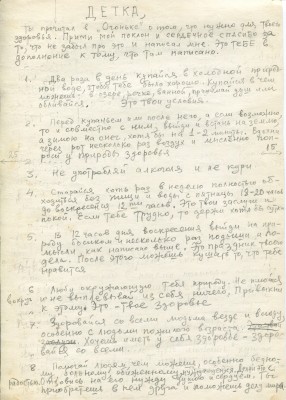 ДЕТКА,
ты прочитал в "Огоньке" о том, что нужно для Твоего
здоровья. Прими мой поклон и сердечное спасибо за
то, что не забыл про это и написал мне. Это ТЕБЕ в
дополнение к тому, что там написано.
1. Два раза в день купайся в холодной природ-
ной воде, чтобы тебе было хорошо. Купайся в чем
можешь: в озере, речке, ванной, принимай душ или
обливайся. Это твои условия.
2. Перед купанием или после него, а если возможно,
то и совместно с ним, выйди и встань на землю,
а зимой на снег, хотя бы на 1-2 минуты. Вдохни
через рот несколько раз воздух и мысленно попро-
си у природы здоровья
15
3. Не употребляй алкоголя и не кури
4. Старайся хоть раз в неделю полностью об-
ходиться без пищи и воды с пятницы 18-20 часов
до воскресенья 12ти часов. Это твои заслуги и
покой. Если тебе трудно, то держи хотя бы сутки
5. В 12 часов дня воскресенья выйди на при-
роду босиком и несколько раз подыши и по-
мысли как написано выше. Это праздник твоего
дела. После этого можешь кушать то, что тебе
нравится
6. Люби окружающую тебя природу. Не плюйся
вокруг и не выплевывай из себя ничего. Привыкни
к этому. Это - Твое здоровье
7. Здоровайся со всеми людьми везде и всюду
особенно с людьми пожилого возраста.
Хочешь иметь у себя здоровье - здоро-
вайся со всеми.
8. Помогай людям чем можешь, особенно бедно-
му, больному, обиженному, нуждающемуся. Делай это
с радостью. Отзовись на его нужду душою и сердцем. Ты
приобретешь в нем друга и поможешь делу мира.